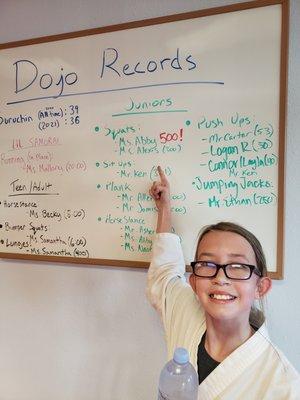 Dojo Records
Duruchin (All time): 39
(2021): 36
Lil SAMURAI
- Ms. Mallory (20:00)
Teen/Adult
• Horse Stance
- Ms. Becky (5:00)
• Bumper Squats:
- Ms. Samantha (6:00)
• Lunges
- Ms. Samantha (400)
Juniors
• Squats
- Ms. Abby 500!
• Sit Ups:
- Mr Ken
• Plank
- Mr Asher
- Mr James
• Horse Stance
- Mr. Asher
- Ms. Abby
• Push Ups
- Mr Carter (53)
- Logan R (30)
- Connor/Layla (40)
- Mr Ken
• Jumping Jacks:
- Mr. Ethan (250)